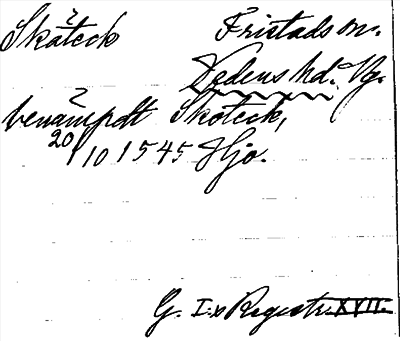 Skåteck Fristads sn.
Vedens hd. Vg.
benämpdt Skoteck,
20/10 1545 Hjo.
G. I:s Registr. XVII.